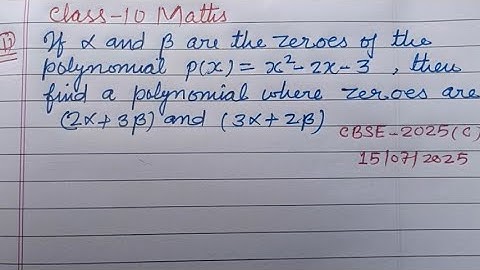 Class-10 Maths
12 If α and β are the zeroes of the
polynomial p(x) = x² - 2x - 3 , then
find a polynomial where zeroes are
(2α + 3β) and (3α + 2β)
CBSE-2025(C)
15/07/2025